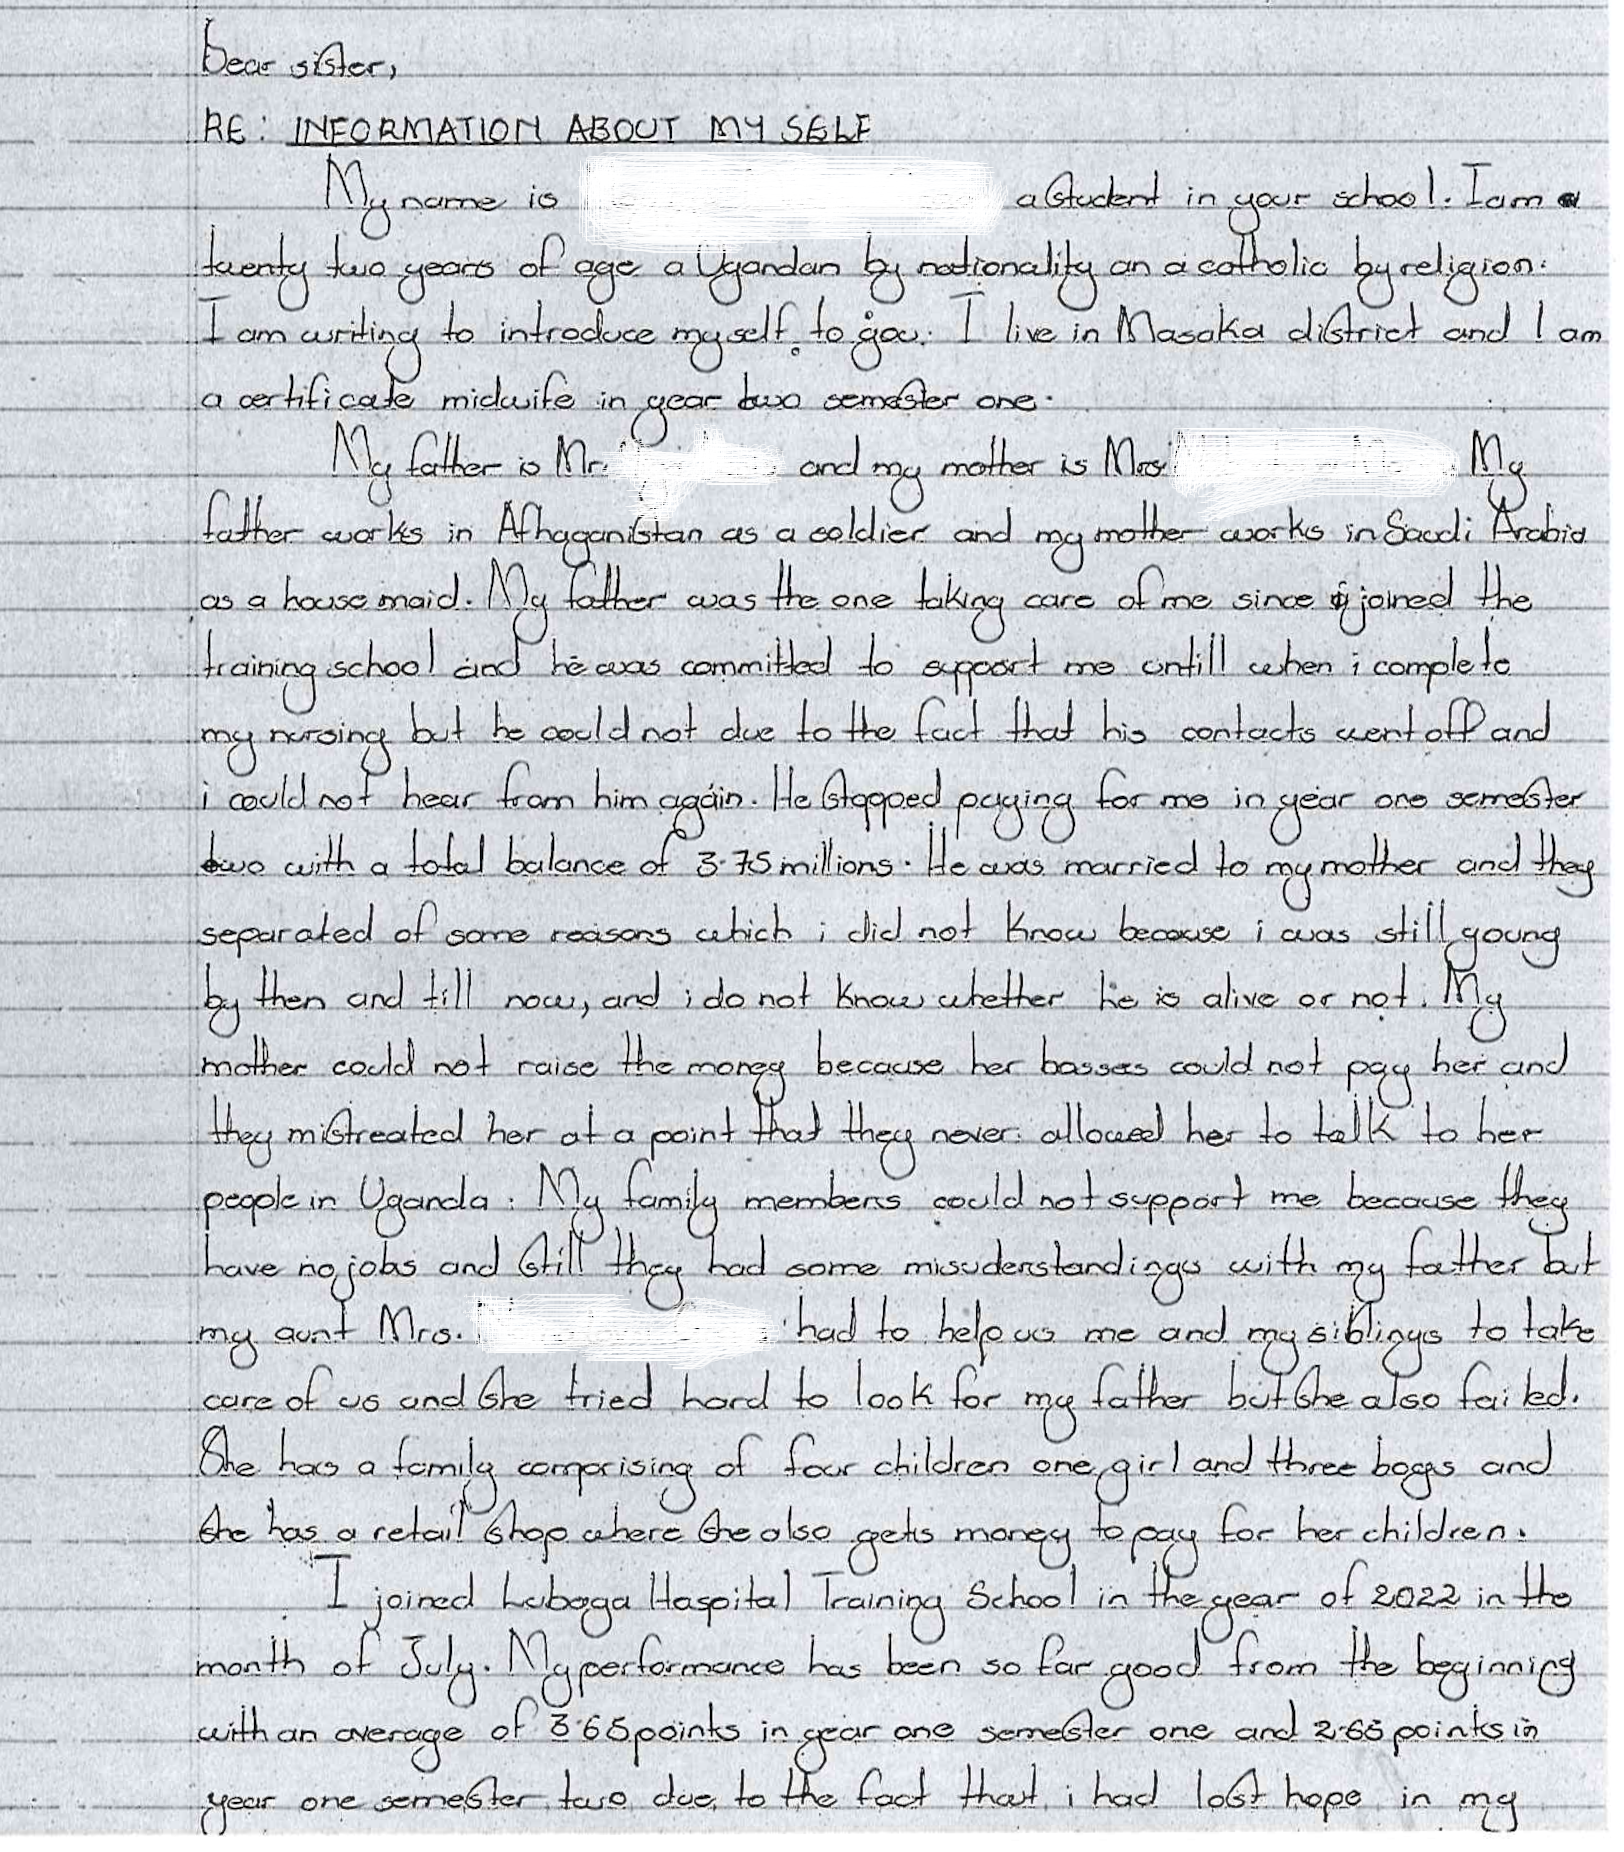 Dear sister,
RE: INFORMATION ABOUT MY SELF
My name is a student in your school. I am a
twenty two years of age a Ugandan by nationality an a catholic by religion.
I am writing to introduce myself to you. I live in Masaka district and I am
a certificate midwife in year two semester one.
My father is Mr. and my mother is Mrs. My
father works in Afhaganistan as a soldier and my mother works in Saudi Arabia
as a house maid. My father was the one taking care of me since i joined the
training school and he was committed to support me untill when i complete
my nursing but he could not due to the fact that his contacts went off and
i could not hear from him again. He stopped paying for me in year one semester
two with a total balance of 3.75 millions. He was married to my mother and they
separated of some reasons which i did not know because i was still young
by then and till now, and i do not know whether he is alive or not. My
mother could not raise the money because her bosses could not pay her and
they mistreated her at a point that they never allowed her to talk to her
people in Uganda. My family members could not support me because they
have no jobs and still they had some misuderstandings with my father but
my aunt Mrs. had to help us me and my siblings to take
care of us and she tried hard to look for my father but she also failed.
She has a family comprising of four children one girl and three boys and
she has a retail shop where she also gets money to pay for her children.
I joined Lubaga Hospital Training School in the year of 2022 in the
month of July. My performance has been so far good from the beginning
with an average of 3.65 points in year one semester one and 2.65 points in
year one semester two due to the fact that i had lost hope in my